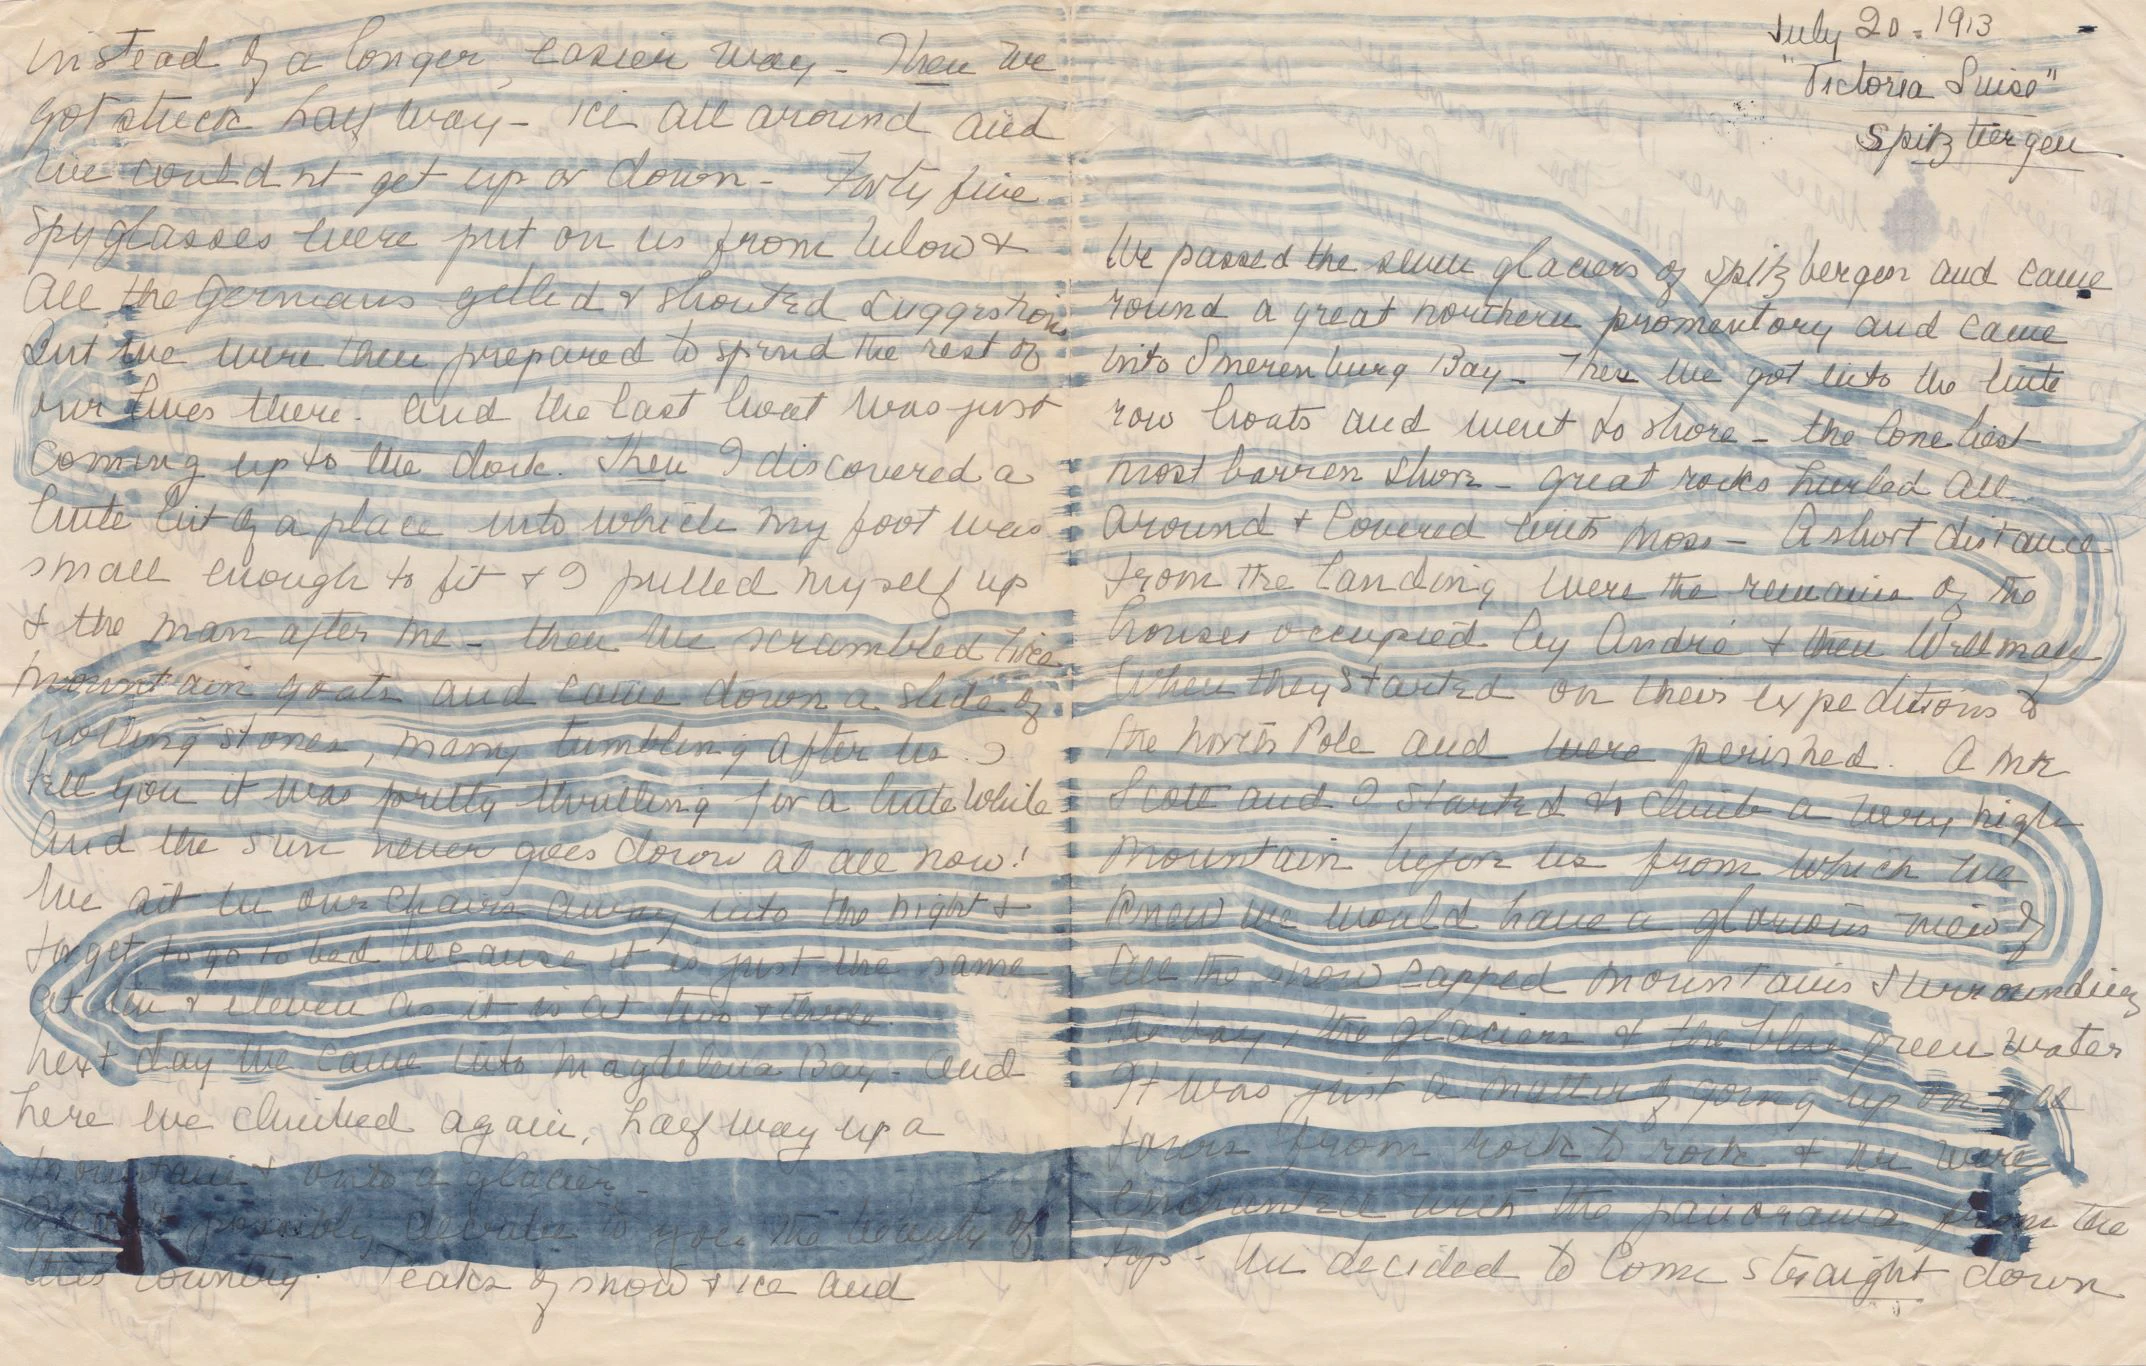 July 20 - 1913
"Victoria Luise"
Spitzbergen
We passed the seven glaciers of Spitzbergen and came
round a great northern promentory and came
into Smerenburg Bay - Then we got into the little
row boats and went to shore - the loneliest
most barren shore - great rocks hurled all
around & covered with moss - A short distance
from the landing were the remains of the
houses occupied by André & then Wellman
when they started on their expeditions to
the North Pole and were perished. A Mr
Scott and I started to climb a very high
mountain before us from which we
knew we would have a glorious view of
all the snow capped mountains surrounding
the bay, the glaciers & the blue green water
It was just a matter of going up on all
fours from rock to rock & we were
enchanted with the panorama from the
top - We decided to come straight down
instead of a longer, easier way - Then we
got stuck half way - ice all around and
we couldnt get up or down - Forty five
spyglasses were put on us from below &
all the Germans yelled & shouted suggestions
but we were then prepared to spend the rest of
our lives there - and the last boat was just
coming up to the dock. Then I discovered a
little bit of a place into which my foot was
small enough to fit & I pulled myself up
& the man after me - then we scrambled like
mountain goats and came down a slide of
rolling stones, many tumbling after us. I
tell you it was pretty thrilling for a little while
And the sun never goes down at all now!
We sit in our chairs away into the night &
forget to go to bed because it is just the same
at ten & eleven as it is at two & three.
Next day we came into Magdelena Bay - and
here we climbed again, half way up a
mountain & onto a glacier -
possibly describe to you the beauty of
this country. Peaks of snow & ice and